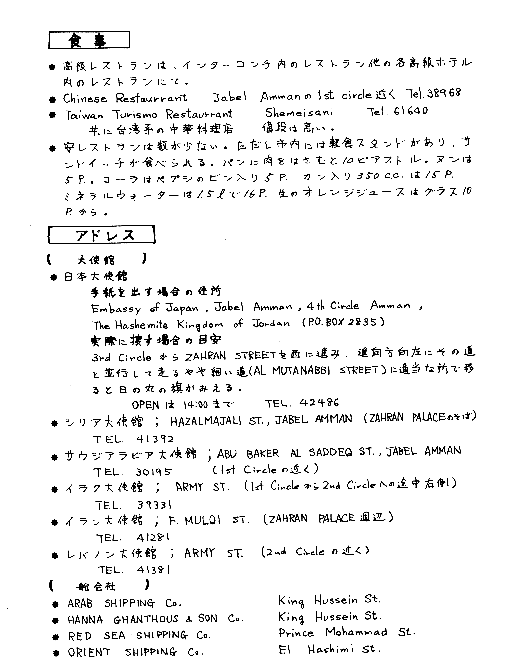 食事
● 高級レストランは、インターコンチ内のレストラン他の各高級ホテル
内のレストランにて。
● Chinese Restaurrant Jabel Ammanの1st circle近く Tel.38968
● Taiwan Turismo Restaurrant Shemeisani Tel 61640
共に台湾系の中華料理店 値段は高い。
● 安レストランは数が少ない。ただし市内には軽食スタンドがあり、サ
ンドイッチが食べられる。パンに肉をはさむと10ピアストル。ヌンは
5P. コーラはペプシのビン入り5P. カン入り350cc.は15P.
ミネラルウォーターは1.5ℓで16P. 生のオレンジジュースはグラス10
P.から。
アドレス
【 大使館 】
● 日本大使館
手紙を出す場合の住所
Embassy of Japan, Jabel Amman, 4th Circle Amman,
The Hashemite Kingdom of Jordan (P.O.BOX 2835)
実際に捜す場合の目安
3rd Circleから ZAHRAN STREETを西に進み、進向方向左にその道
と並行して走るやや細い道(AL MUTANABBI STREET)に適当な所で移
ると日の丸の旗がみえる。
OPENは 14:00まで TEL. 42486
● シリア大使館 ; HAZALMAJALI ST., JABEL AMMAN (ZAHRAN PALACEのそば)
TEL. 41392
● サウジアラビア大使館 ; ABU BAKER AL SADDEQ ST., JABEL AMMAN
TEL. 30195 (1st Circleの近く)
● イラク大使館 ; ARMY ST. (1st Circleから2nd Circleへの途中右側)
TEL. 39331
● イラン大使館 ; F. MULQI ST. (ZAHRAN PALACE 周辺)
TEL. 41281
● レバノン大使館 ; ARMY ST. (2nd Circleの近く)
TEL. 41381
【 船会社 】
● ARAB SHIPPING Co. King Hussein St.
● HANNA GHANTHOUS & SON Co. King Hussein St.
● RED SEA SHIPPING Co. Prince Mohammad St.
● ORIENT SHIPPING Co. El Hashimi St.